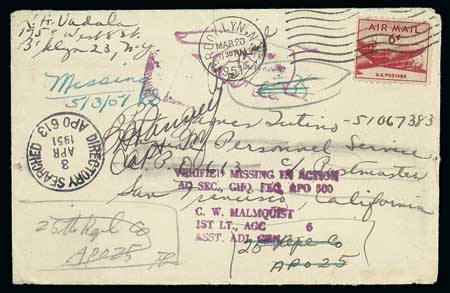 V. A. Vadala
195 West 8 St.
B'klyn 23, N.Y.
BROOKLYN, N.Y.
MAR 20
1951
AIR MAIL
6¢
U.S. POSTAGE
Missing
5/3/51
James Tutino - 51067383
Army Personnel Service
APO 613 c/o Postmaster
San Francisco, California
Capt
DIRECTORY SEARCHED
3
APR
1951
APO 613
VERIFIED MISSING IN ACTION
AG SEC, GHQ, FEC, APO 500
C. W. MALMQUIST
1ST LT., AGC 6
ASST. ADJ. GEN.
25th Repl Co
APO 25
25 Repl Co
APO 25